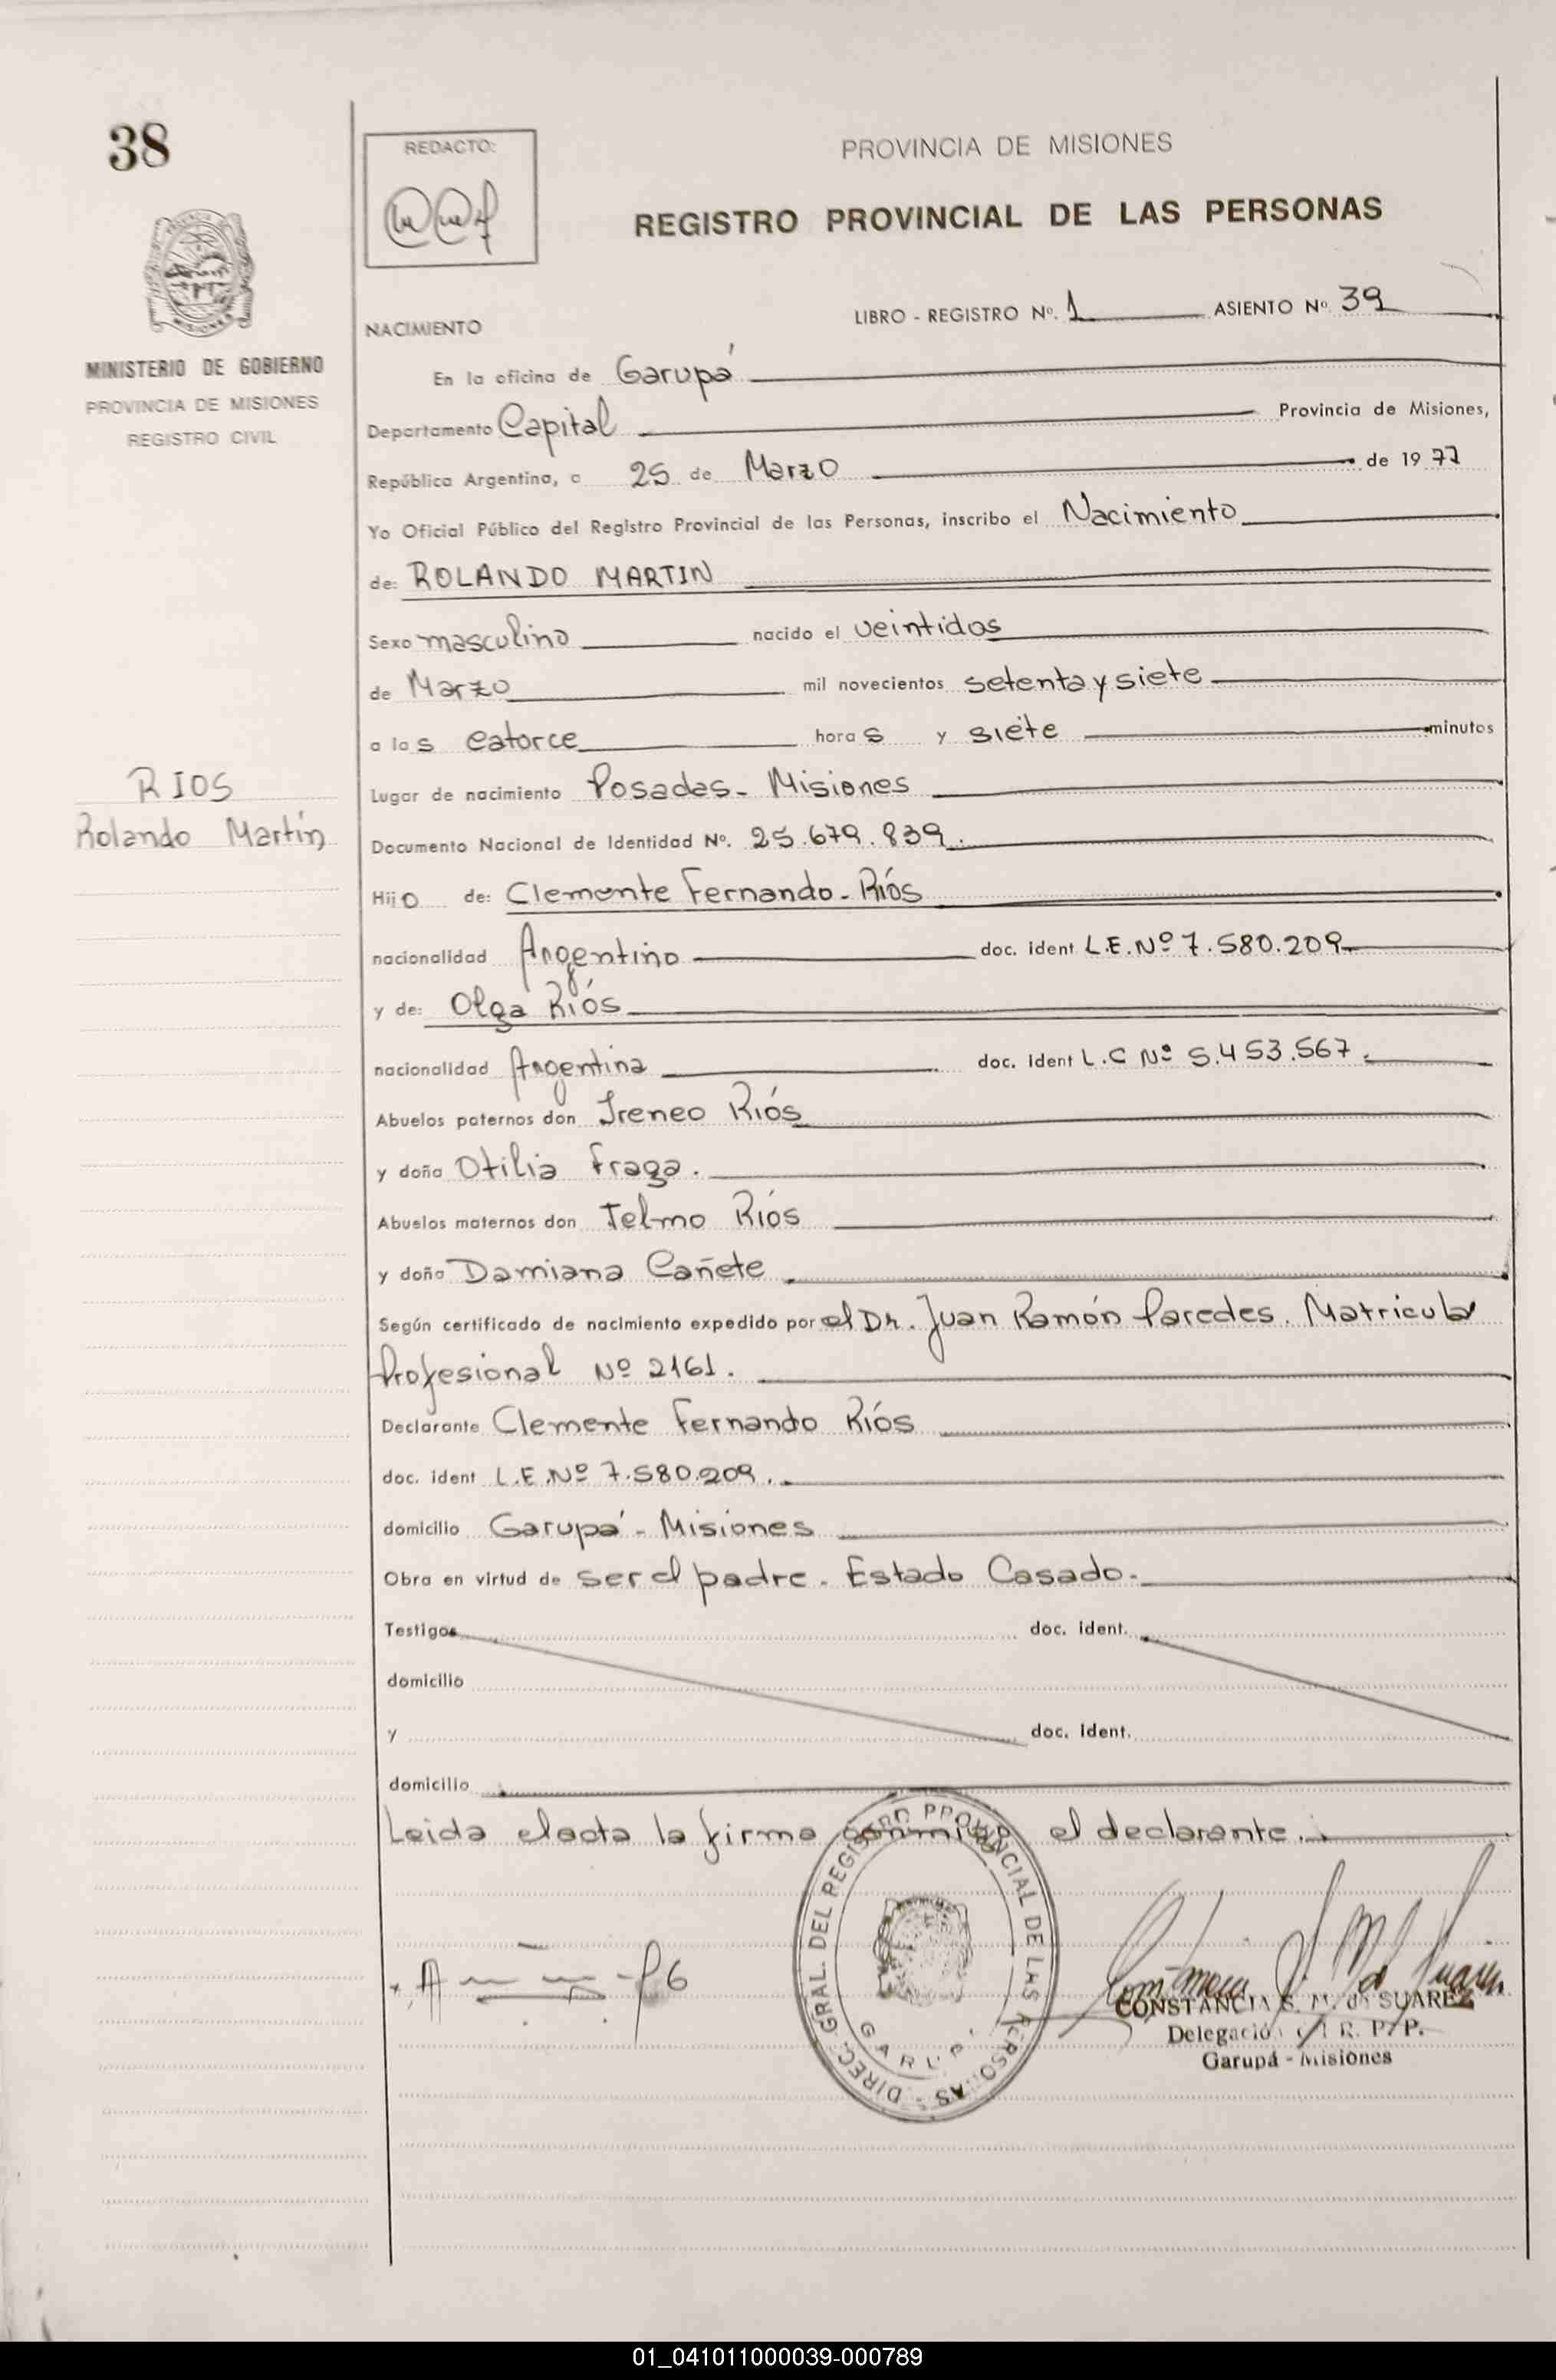 38
REDACTO:
PROVINCIA DE MISIONES
REGISTRO PROVINCIAL DE LAS PERSONAS
MINISTERIO DE GOBIERNO
PROVINCIA DE MISIONES
REGISTRO CIVIL
RIOS
Rolando Martín
LIBRO - REGISTRO Nº. 1 ASIENTO Nº 39
NACIMIENTO
En la oficina de Garupá
Departamento Capital Provincia de Misiones,
República Argentina, a 25 de Marzo de 1977
Yo Oficial Público del Registro Provincial de las Personas, inscribo el Nacimiento
de: ROLANDO MARTIN
Sexo masculino nacido el veintidos
de Marzo mil novecientos setenta y siete
a las catorce horas y siete minutos
Lugar de nacimiento Posadas - Misiones
Documento Nacional de Identidad Nº. 25.679.839.
Hijo de: Clemente Fernando - Ríos
nacionalidad Argentino doc. ident L.E.Nº 7.580.209
y de: Olga Ríos
nacionalidad Argentina doc. ident L.C Nº 5.453.567.
Abuelos paternos don Ireneo Ríos
y doña Otilia Fraga.
Abuelos maternos don Telmo Ríos
y doña Damiana Cañete
Según certificado de nacimiento expedido por el Dr. Juan Ramón Paredes. Matricula
Profesional Nº 2161.
Declarante Clemente Fernando Ríos
doc. ident L.E.Nº 7.580.209.
domicilio Garupá - Misiones
Obra en virtud de ser el padre. Estado Casado.
Testigos doc. ident.
domicilio
y doc. ident.
domicilio
Leida el acta la firma conmigo el declarante.
DIREC. GRAL. DEL REGISTRO PROVINCIAL DE LAS PERSONAS
GARUPA
CONSTANCIA S. M. de SUAREZ
Delegación R. P. P.
Garupá - Misiones
01_041011000039-000789